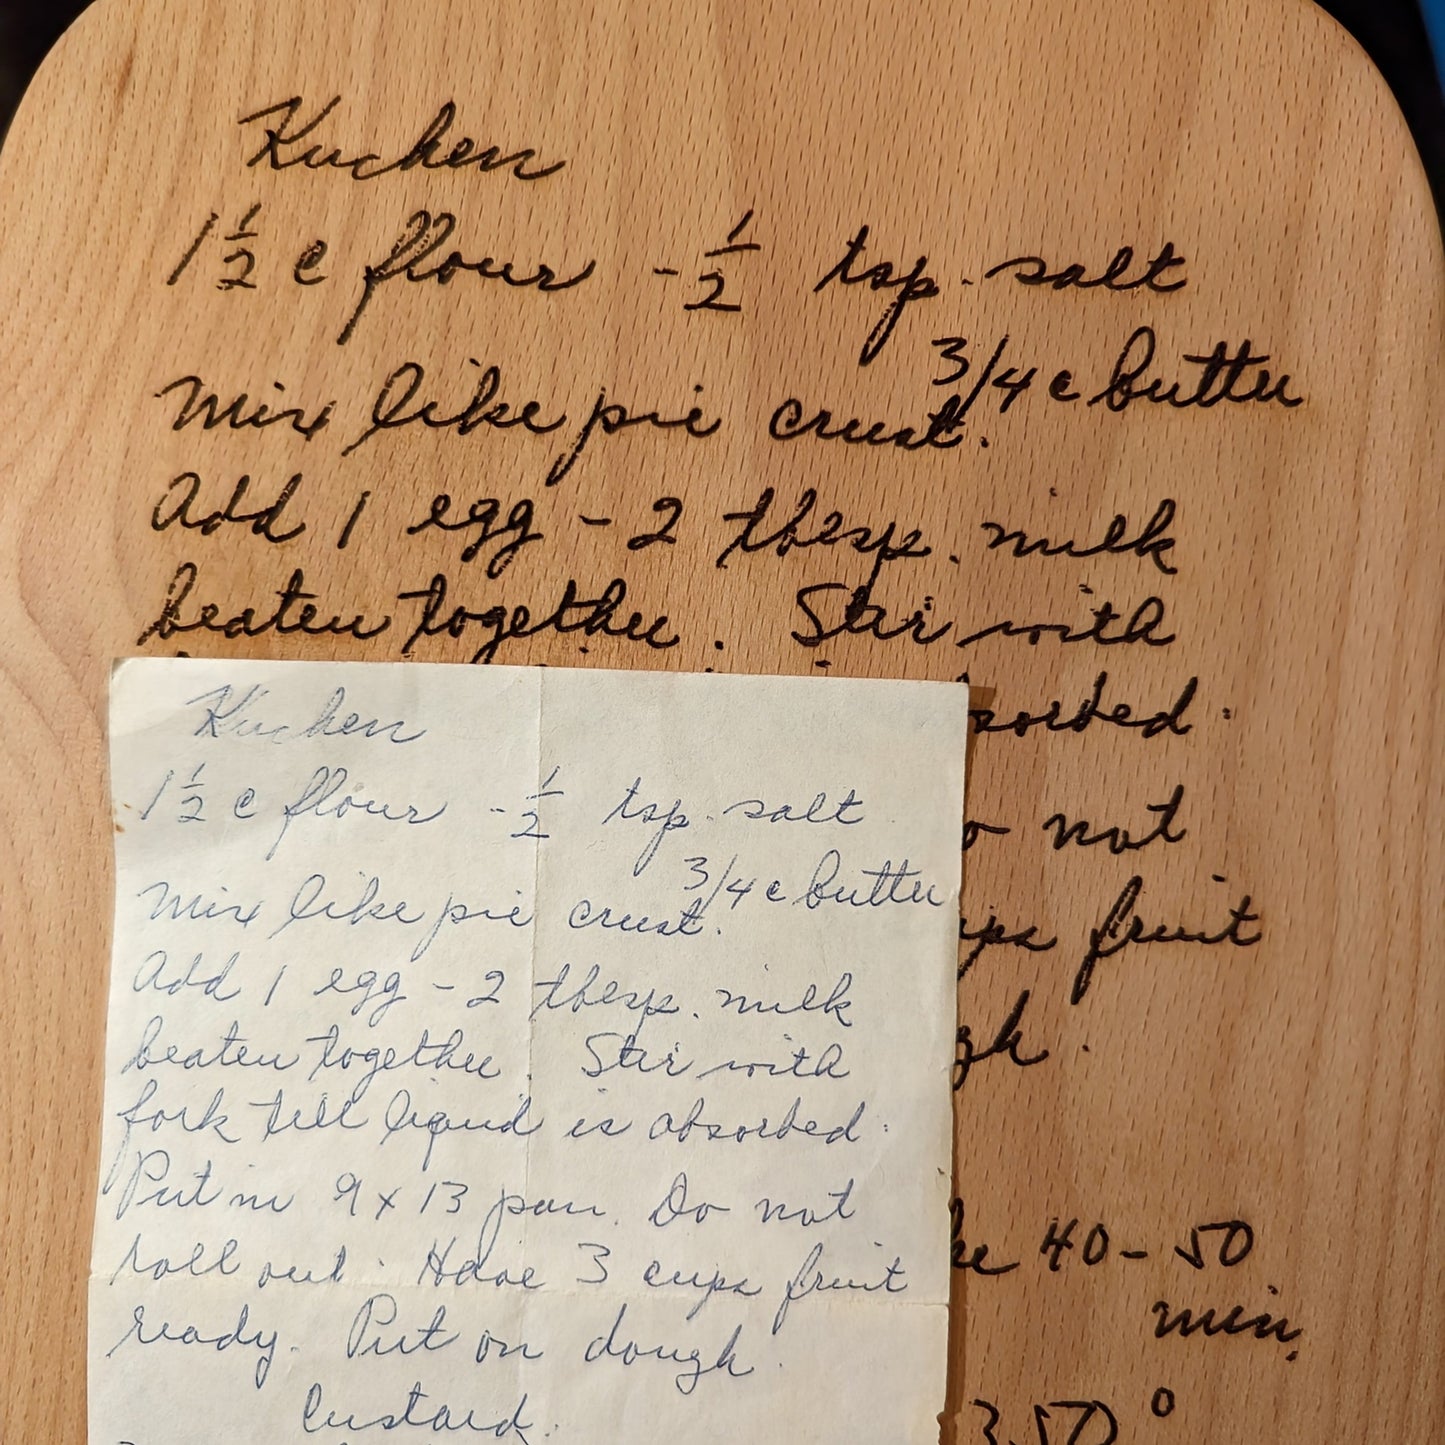 Kuchen
1 1/2 c flour - 1/2 tsp. salt
3/4 c butter
Mix like pie crust.
Add 1 egg - 2 tblsp. milk
beaten together. Stir with
sorbed.
not
fruit
gh.
40 - 50
min.
350°
Kuchen
1 1/2 c flour - 1/2 tsp. salt
3/4 c butter
Mix like pie crust.
Add 1 egg - 2 tblsp. milk
beaten together. Stir with
fork till liquid is absorbed.
Put in 9 x 13 pan. Do not
roll out. Have 3 cups fruit
ready. Put on dough.
Custard.